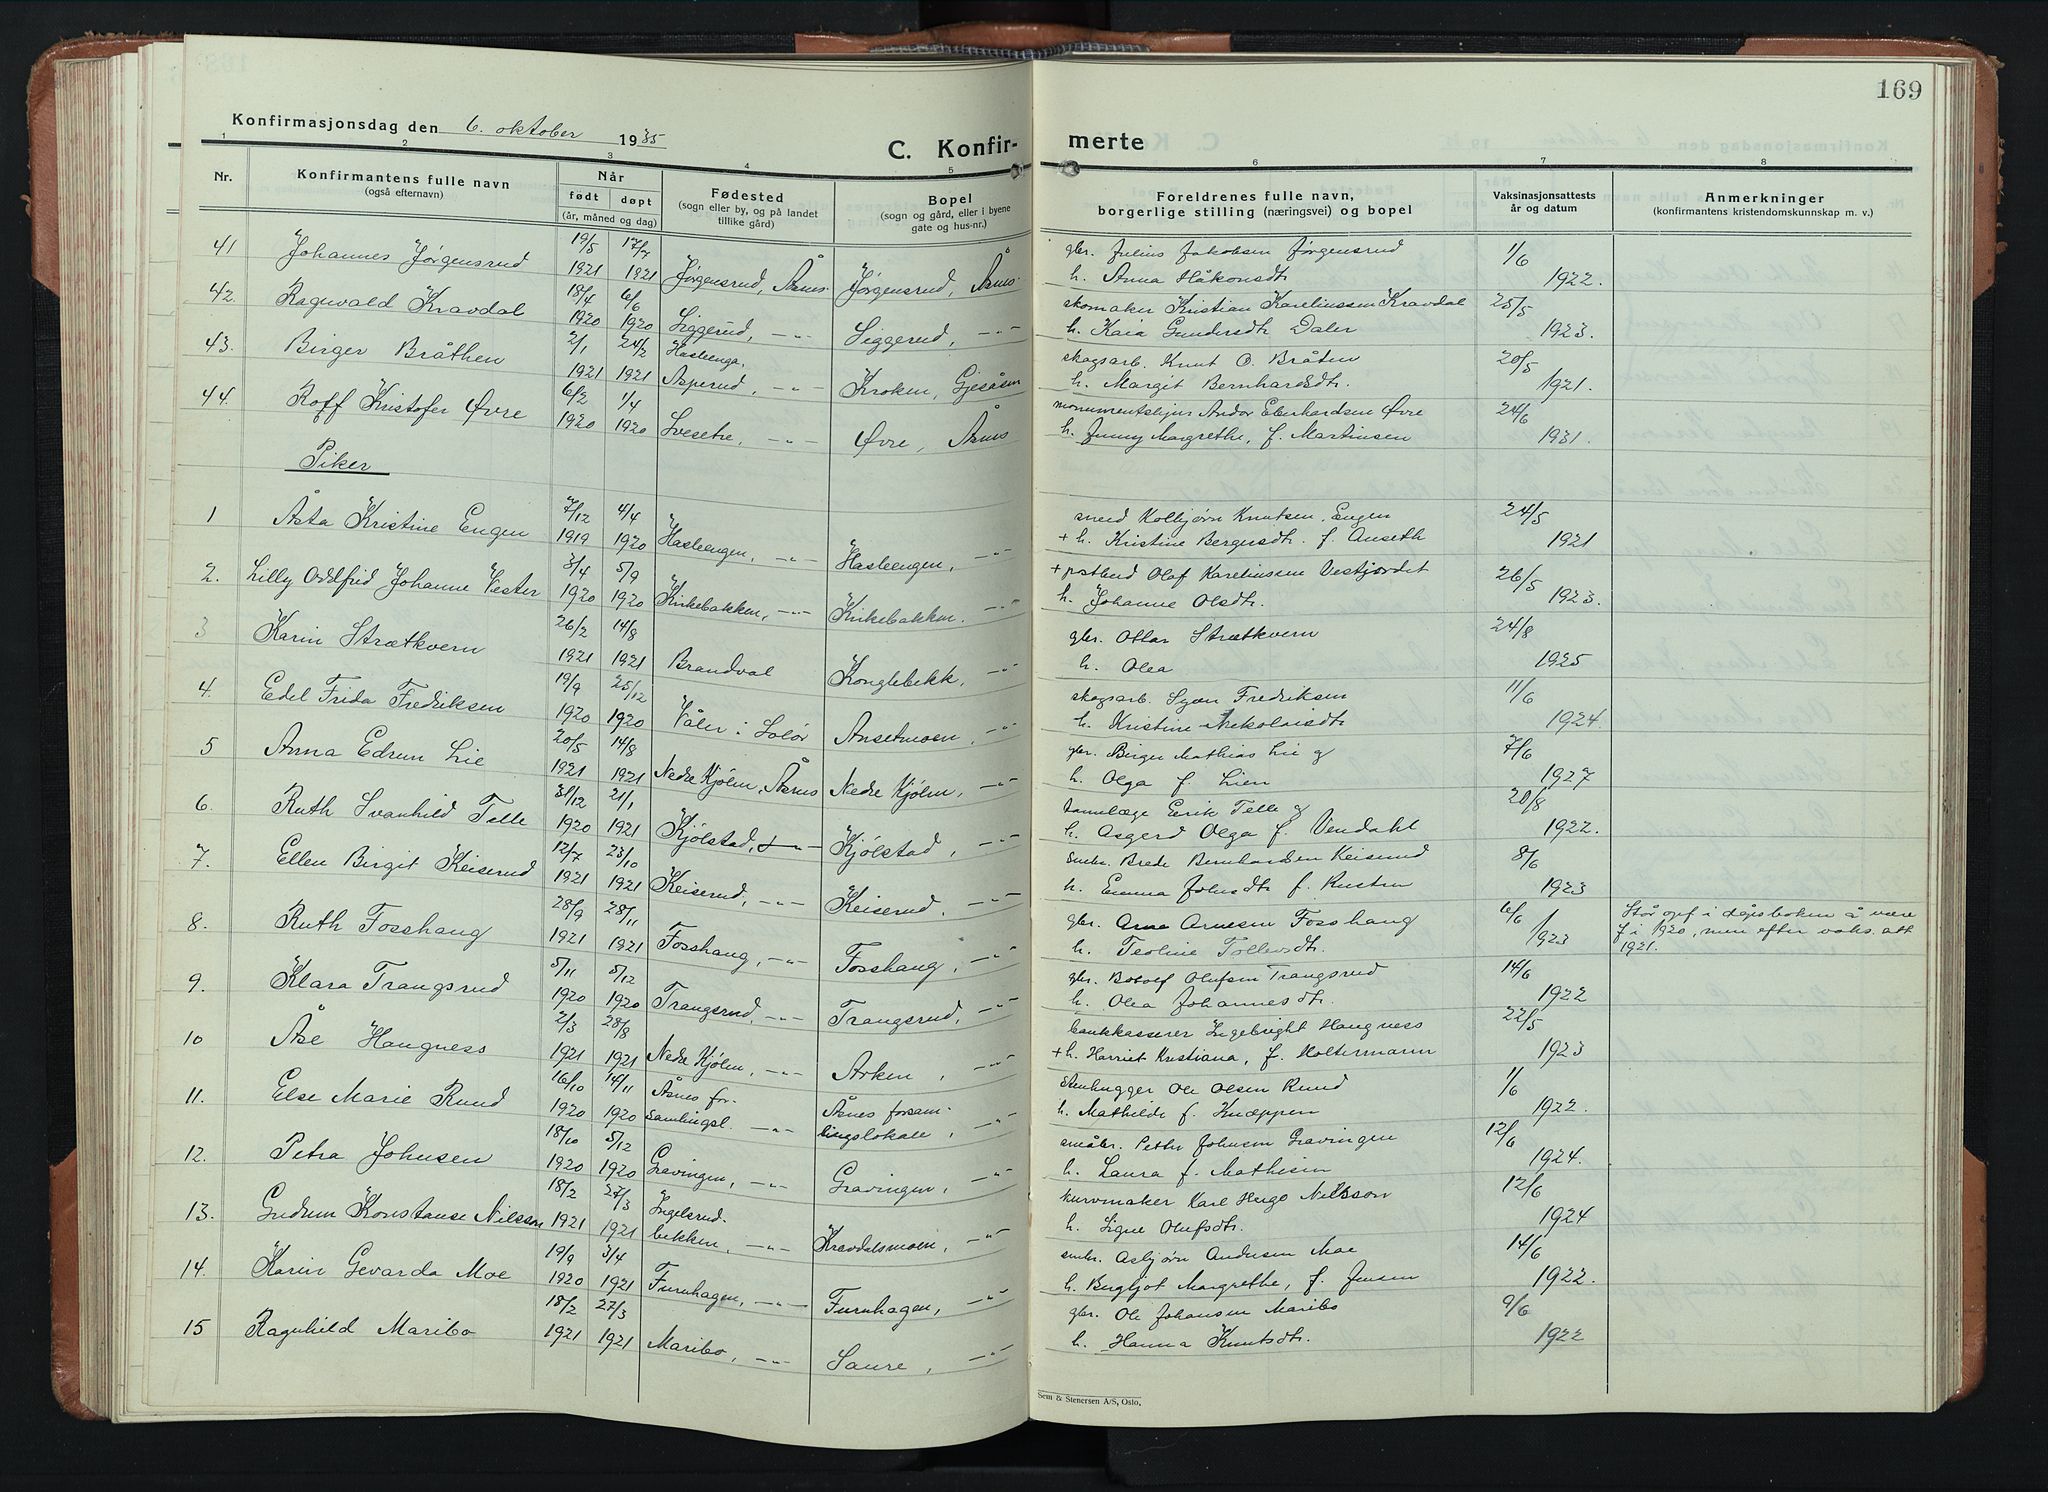 169
Konfirmasjonsdag den 6. oktober 1935
C. Konfir-
merte
1 2 3 4 5 6 7 8
Nr.
Konfirmantens fulle navn
(også efternavn)
Når
født døpt
(år, måned og dag)
Fødested
(sogn eller by, og på landet
tillike gård)
Bopel
(sogn og gård, eller i byene
gate og hus-nr.)
Foreldrenes fulle navn,
borgerlige stilling (næringsvei) og bopel
Vaksinasjonsattests
år og datum
Anmerkninger
(konfirmantens kristendomskunnskap m. v.)
41 Johannes Jørgensrud 19/5 1921 17/7 1921 Jørgensrud, Åsnes Jørgensrud, Åsnes
gbr. Julius Jakobsen Jørgensrud 1/6
h. Anna Håkonsdtr. 1922.
42. Ragnvald Kravdal 18/4 1920 6/6 1920 Siggerud, -"- Siggerud, -"-
skomaker Kristian Kareliussen Kravdal 25/5
h. Kaia Gundersdtr. Daler 1923.
43. Birger Bråthen 2/1 1921 24/2 1921 Hasleenga, Asperud, -"- Kroken, Gjesåsen
skogsarb. Knut O. Bråten 20/5
h. Margit Bernhardsdtr. 1921.
44. Roff Kristofer Øvre 6/2 1920 1/4 1920 Svesetre, -"- Øvre, Åsnes
monumentshjus Andor Eberhardsen Øvre 24/6
h. Jenny Margrethe, f. Martinsen 1931.
Piker
1 Åsta Kristine Engen 7/12 1919 4/4 1920 Hasleengen, -"- Hasleengen, -"-
smed Kolbjørn Knutsen Engen 24/5
+ h. Kristine Bergersdtr. f. Anseth 1921
2. Lilly Oddfrid Johanne Vester 3/4 1920 5/9 1920 Kirkebakken, -"- Kirkebakken. -"-
+ postbud Olaf Kareliussen Vestjordet 26/5
h. Johanne Olsdtr. 1923.
3 Karin Strætkvern 26/2 1921 14/8 1921 Brandval Konglebekk, -"-
gbr. Ottar Strætkvern 24/8
h. Olea 1925
4. Edel Frida Fredriksen 19/9 1920 25/12 1920 Våler i Solør Ansetmoen, -"-
skogsarb. Syver Fredriksen 11/6
h. Kristine Nikolaisdtr. 1924.
5 Anna Edrun Lie 20/5 1921 14/8 1921 Nedre Kjølen, Åsnes Nedre Kjølen, -"-
gbr. Birger Mathias Lie og 7/6
h. Olga f. Lien 1927
6. Ruth Svanhild Telle 31/12 1920 21/1 1921 Kjølstad, -"- Kjølstad, -"-
tannlæge Erik Telle og 20/8
h. Asgerd Olga f. Vendahl 1922.
7. Ellen Birgit Keiserud 12/7 1921 23/10 1921 Keiserud, -"- Keiserud. -"-
smbr. Brede Bernhardsen Keiserud 8/6
h. Emma Johsdtr. f. Rusten 1923
8. Ruth Fosshaug 28/9 1921 28/11 1921 Fosshaug, -"- Fosshaug, -"-
gbr. Arne Arnesen Fosshaug 6/6
h. Teoline Tollevsdtr. 1/1923
Står opf. i dåpsboken å være
f. i 1920, men efter vaks. att.
1921.
9. Klara Trangsrud 5/11 1920 5/12 1920 Trangsrud, -"- Trangsrud, -"-
gbr. Botolf Olufsen Trangsrud 14/6
h. Olea Johannesdtr. 1922
10 Åse Haugness 2/3 1921 28/8 1921 Nedre Kjølen, -"- Arken, -"-
bankkasserer Ingebright Haugness 22/5
+ h. Harriet Kristiana, f. Holtermann 1923
11. Else Marie Ruud 16/10 1920 14/11 1920 Åsnes for- samlingsl. -"- Åsnes forsam- lingslokale, -"-
Stenhugger Ole Olsen Ruud 1/6
h. Mathilde f. Knæppen 1922.
12. Petra Johnsen 18/10 1920 5/12 1920 Gravingen, -"- Gravingen, -"-
småbr. Petter Johnsen Gravingen 12/6
h. Laura f. Mathisen 1924.
13. Gudrun Konstanse Nilsson 18/2 1921 27/3 1921 Ingelsrud- bekken, -"- Kravdalsmoen, -"-
kurvmaker Karl Hugo Nilsson 12/6
h. Signe Olufsdtr. 1924
14. Karin Gevarda Moe 19/9 1920 3/4 1921 Furuhagen, -"- Furuhagen, -"-
smbr. Asbjørn Andersen Moe 14/6
h. Bergljot Margrethe, f. Jensen 1922.
15 Ragnhild Maribo 18/2 1921 27/3 1921 Maribo, -"- Saure, -"-
gbr. Ole Johansen Maribo 9/6
h. Hanna Knutsdtr. 1922
Sem & Stenersen A/S, Oslo.